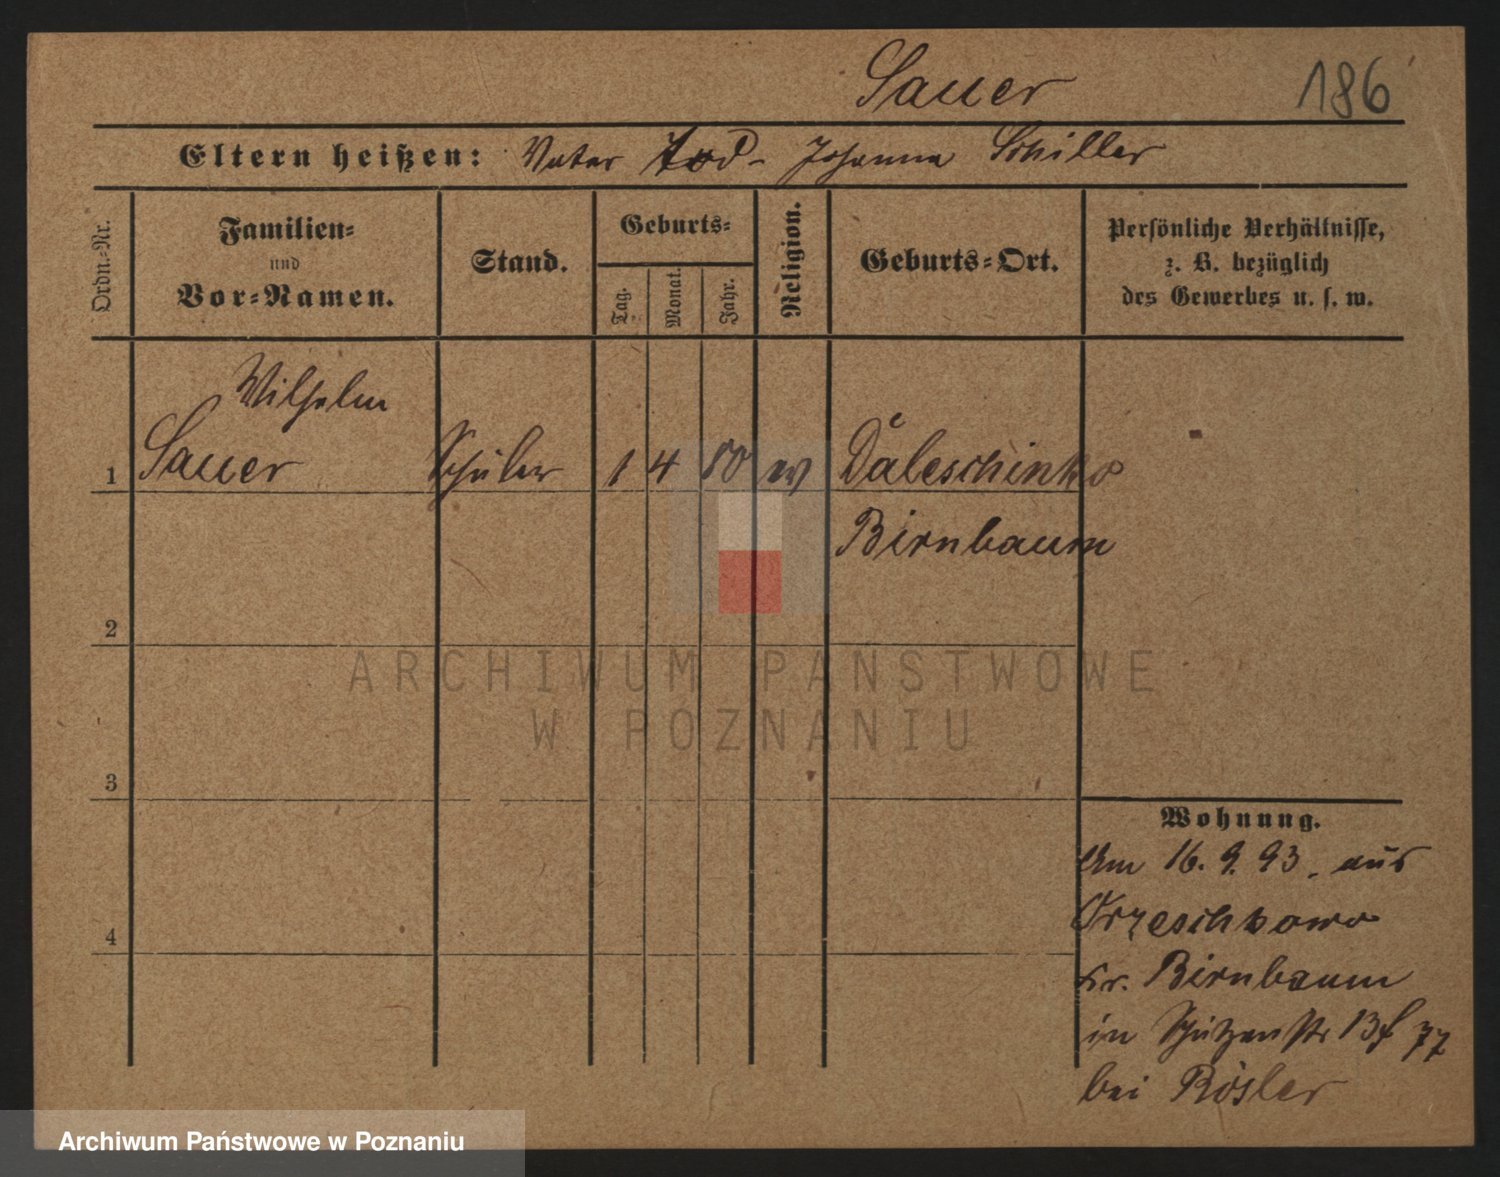 Sauer 186
Eltern heißen: Vater tod - Johanna Schiller
Ordn.-Nr.
Familien-
und
Vor-Namen.
Stand.
Geburts-
Tag.
Monat.
Jahr.
Religion.
Geburts-Ort.
Persönliche Verhältnisse,
z. B. bezüglich
des Gewerbes u. s. w.
Wilhelm
1 Sauer Schüler 1 4 80 Daleschinko
Birnbaum
2
ARCHIWUM PAŃSTWOWE
W POZNANIU
3
Wohnung.
Am 16. 9. 93. aus
Orzeschkowo
4
Kr. Birnbaum
in Schützenstr 13
bei Rösler
Archiwum Państwowe w Poznaniu